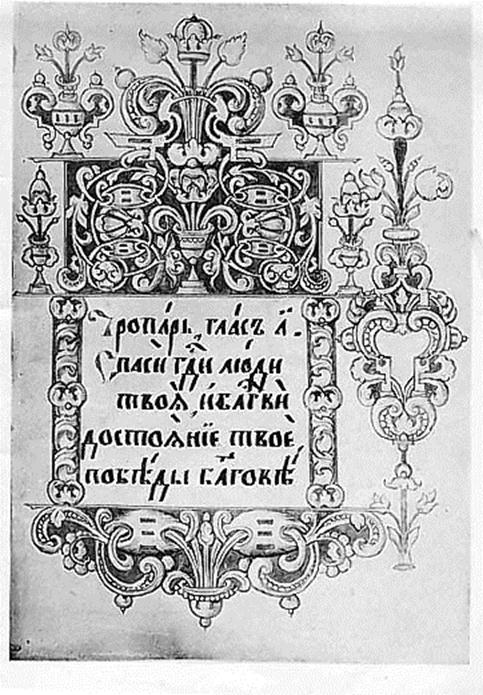 Тропа́рь, гла́съ а҃.
Спаси́ гд҃и лю́ди
твоѧ̀, и҆ блг҃ви̂
достоѧ́нїе твоѐ,
побѣ́ды блг҃овѣ̂